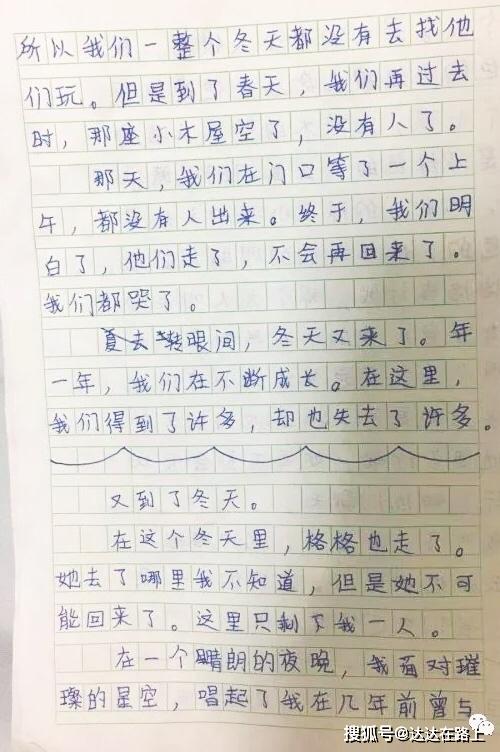 所以我们一整个冬天都没有去找他
们玩。但是到了春天，我们再过去
时，那座小木屋空了，没有人了。
那天，我们在门口等了一个上
午，都没有人出来。终于，我们明
白了，他们走了，不会再回来了。
我们都哭了。
夏去转眼间，冬天又来了。年
一年，我们在不断成长。在这里，
我们得到了许多，却也失去了许多。
又到了冬天。
在这个冬天里，格格也走了。
她去了哪里我不知道，但是她不可
能回来了。这里只剩下我一人。
在一个晴朗的夜晚，我面对璀
璨的星空，唱起了我在几年前曾与
搜狐号@达达在路上